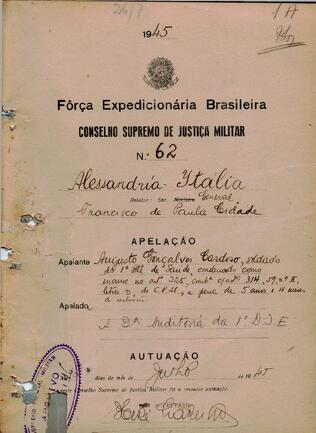 26/7
1 A
1945
Fôrça Expedicionária Brasileira
CONSELHO SUPREMO DE JUSTIÇA MILITAR
N.º 62
Alessandria - Itália
Relator: Snr. Ministro General
Francisco de Paula Cidade
APELAÇÃO
Apelante Augusto Gonçalves Cardoso, soldado
do 1º de Saúde, condenado como
incurso no art. 225, comb. 314, 59, nº II,
letra do C.P.M., a pena de 5 anos e 4 meses
de
Apelado
A 2ª Auditoria da 1ª D.I.E
AUTUAÇÃO
dias do mês de Julho de 1945
neste Conselho Supremo de Justiça Militar fiz a presente autuação.
SECRETÁRIO